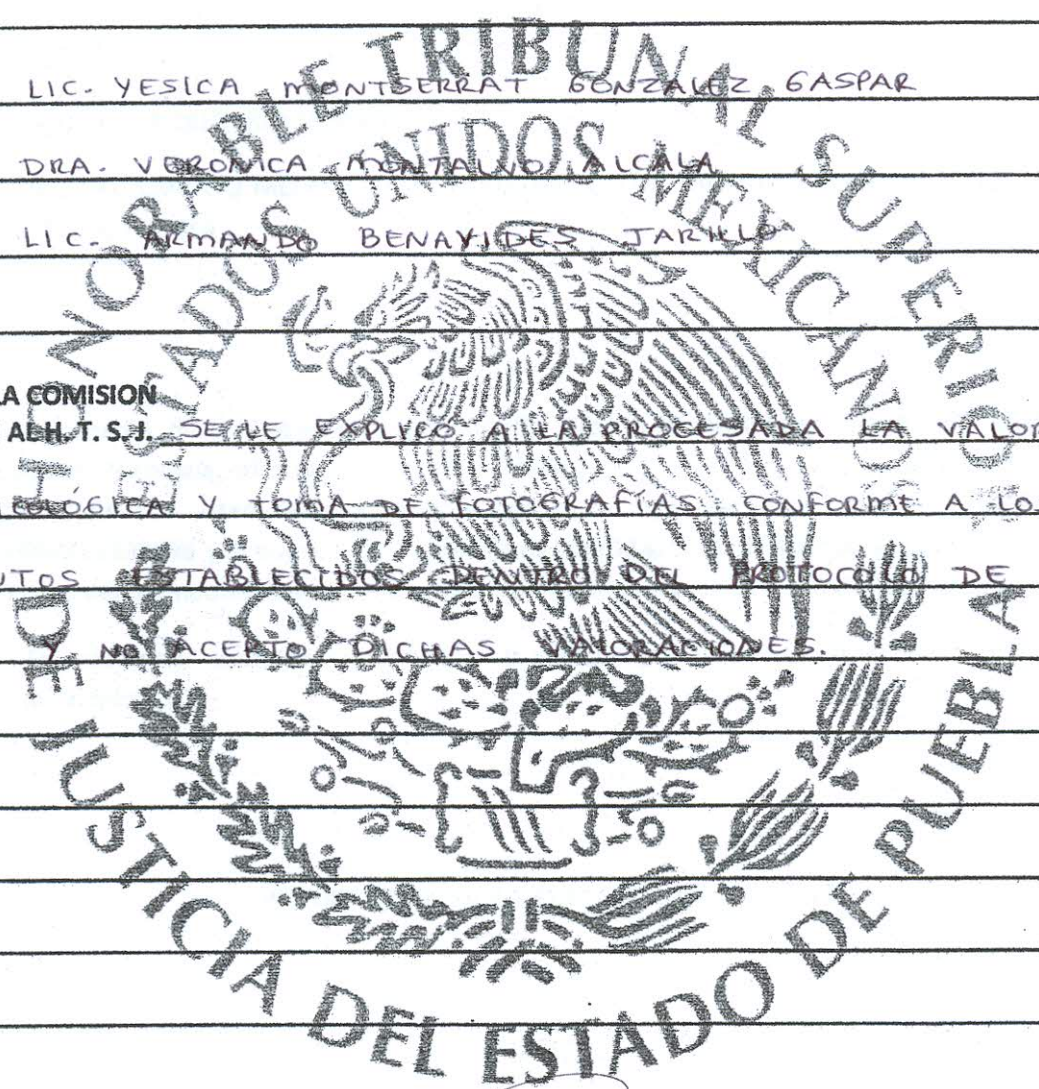 LIC. YESICA MONTSERRAT GONZALEZ GASPAR
DRA. VERONICA MONTALVO ALCALA
LIC. ARMANDO BENAVIDES JARILLO
LA COMISION
AL H. T. S. J. SE LE EXPLICO A LA PROCESADA LA VALOR
Y TOMA DE FOTOGRAFÍAS CONFORME A LO
UTOS ESTABLECIDOS DENTRO DEL PROTOCOLO DE
Y NO ACEPTO DICHAS VALORACIONES.
HONORABLE TRIBUNAL SUPERIOR DE JUSTICIA DEL ESTADO DE PUEBLA
ESTADOS UNIDOS MEXICANOS